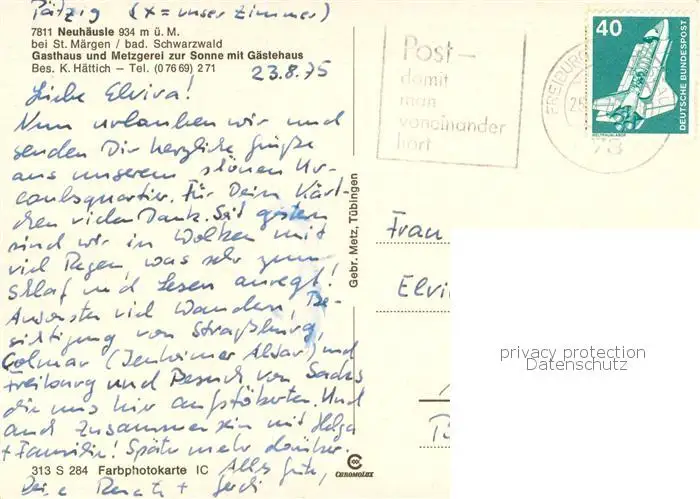 Pätzig (x = unser Zimmer)
7811 Neuhäusle 934 m ü. M.
bei St. Märgen / bad. Schwarzwald
Gasthaus und Metzgerei zur Sonne mit Gästehaus
Bes. K. Hättich – Tel. (0 76 69) 271
23.8.75
Liebe Elvira!
Nun urlauben wir und
senden Dir herzliche Grüße
aus unserem schönen Ur-
laubsquartier. Für Dein Kärt-
chen vielen Dank. Seit gestern
sind wir in Wolken mit
viel Regen, was sehr zum
Schlaf und Lesen anregt!
Ansonsten viel Wandern, Be-
sichtigung von Straßburg,
Colmar (Isenheimer Altar) und
Freiburg und Besuch von
die uns hier aufstöberten. Und
auch Zusammensein mit Helga
+ Familie! Später mehr darüber.
Alles Gute,
Deine Renate +
313 S 284 Farbphotokarte IC
CHROMOLUX
Gebr. Metz, Tübingen
Post–
damit
man
voneinander
hört
FREIBURG
78
40
DEUTSCHE BUNDESPOST
WELTRAUMLABOR
Frau
Elvi
privacy protection
Datenschutz